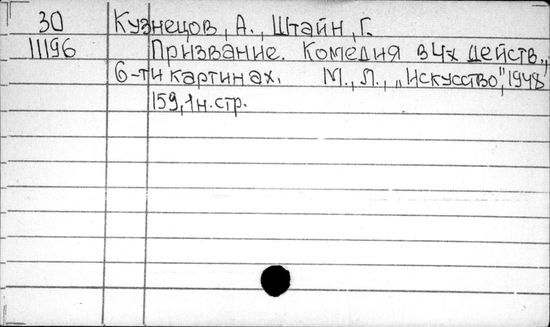 30 Кузнецов, А., Штайн, Г.
11196 Призвание. Комедия в 4х действ.,
6-ти картинах. М., Л., „Искусство", 1948
159, 1 н. стр.